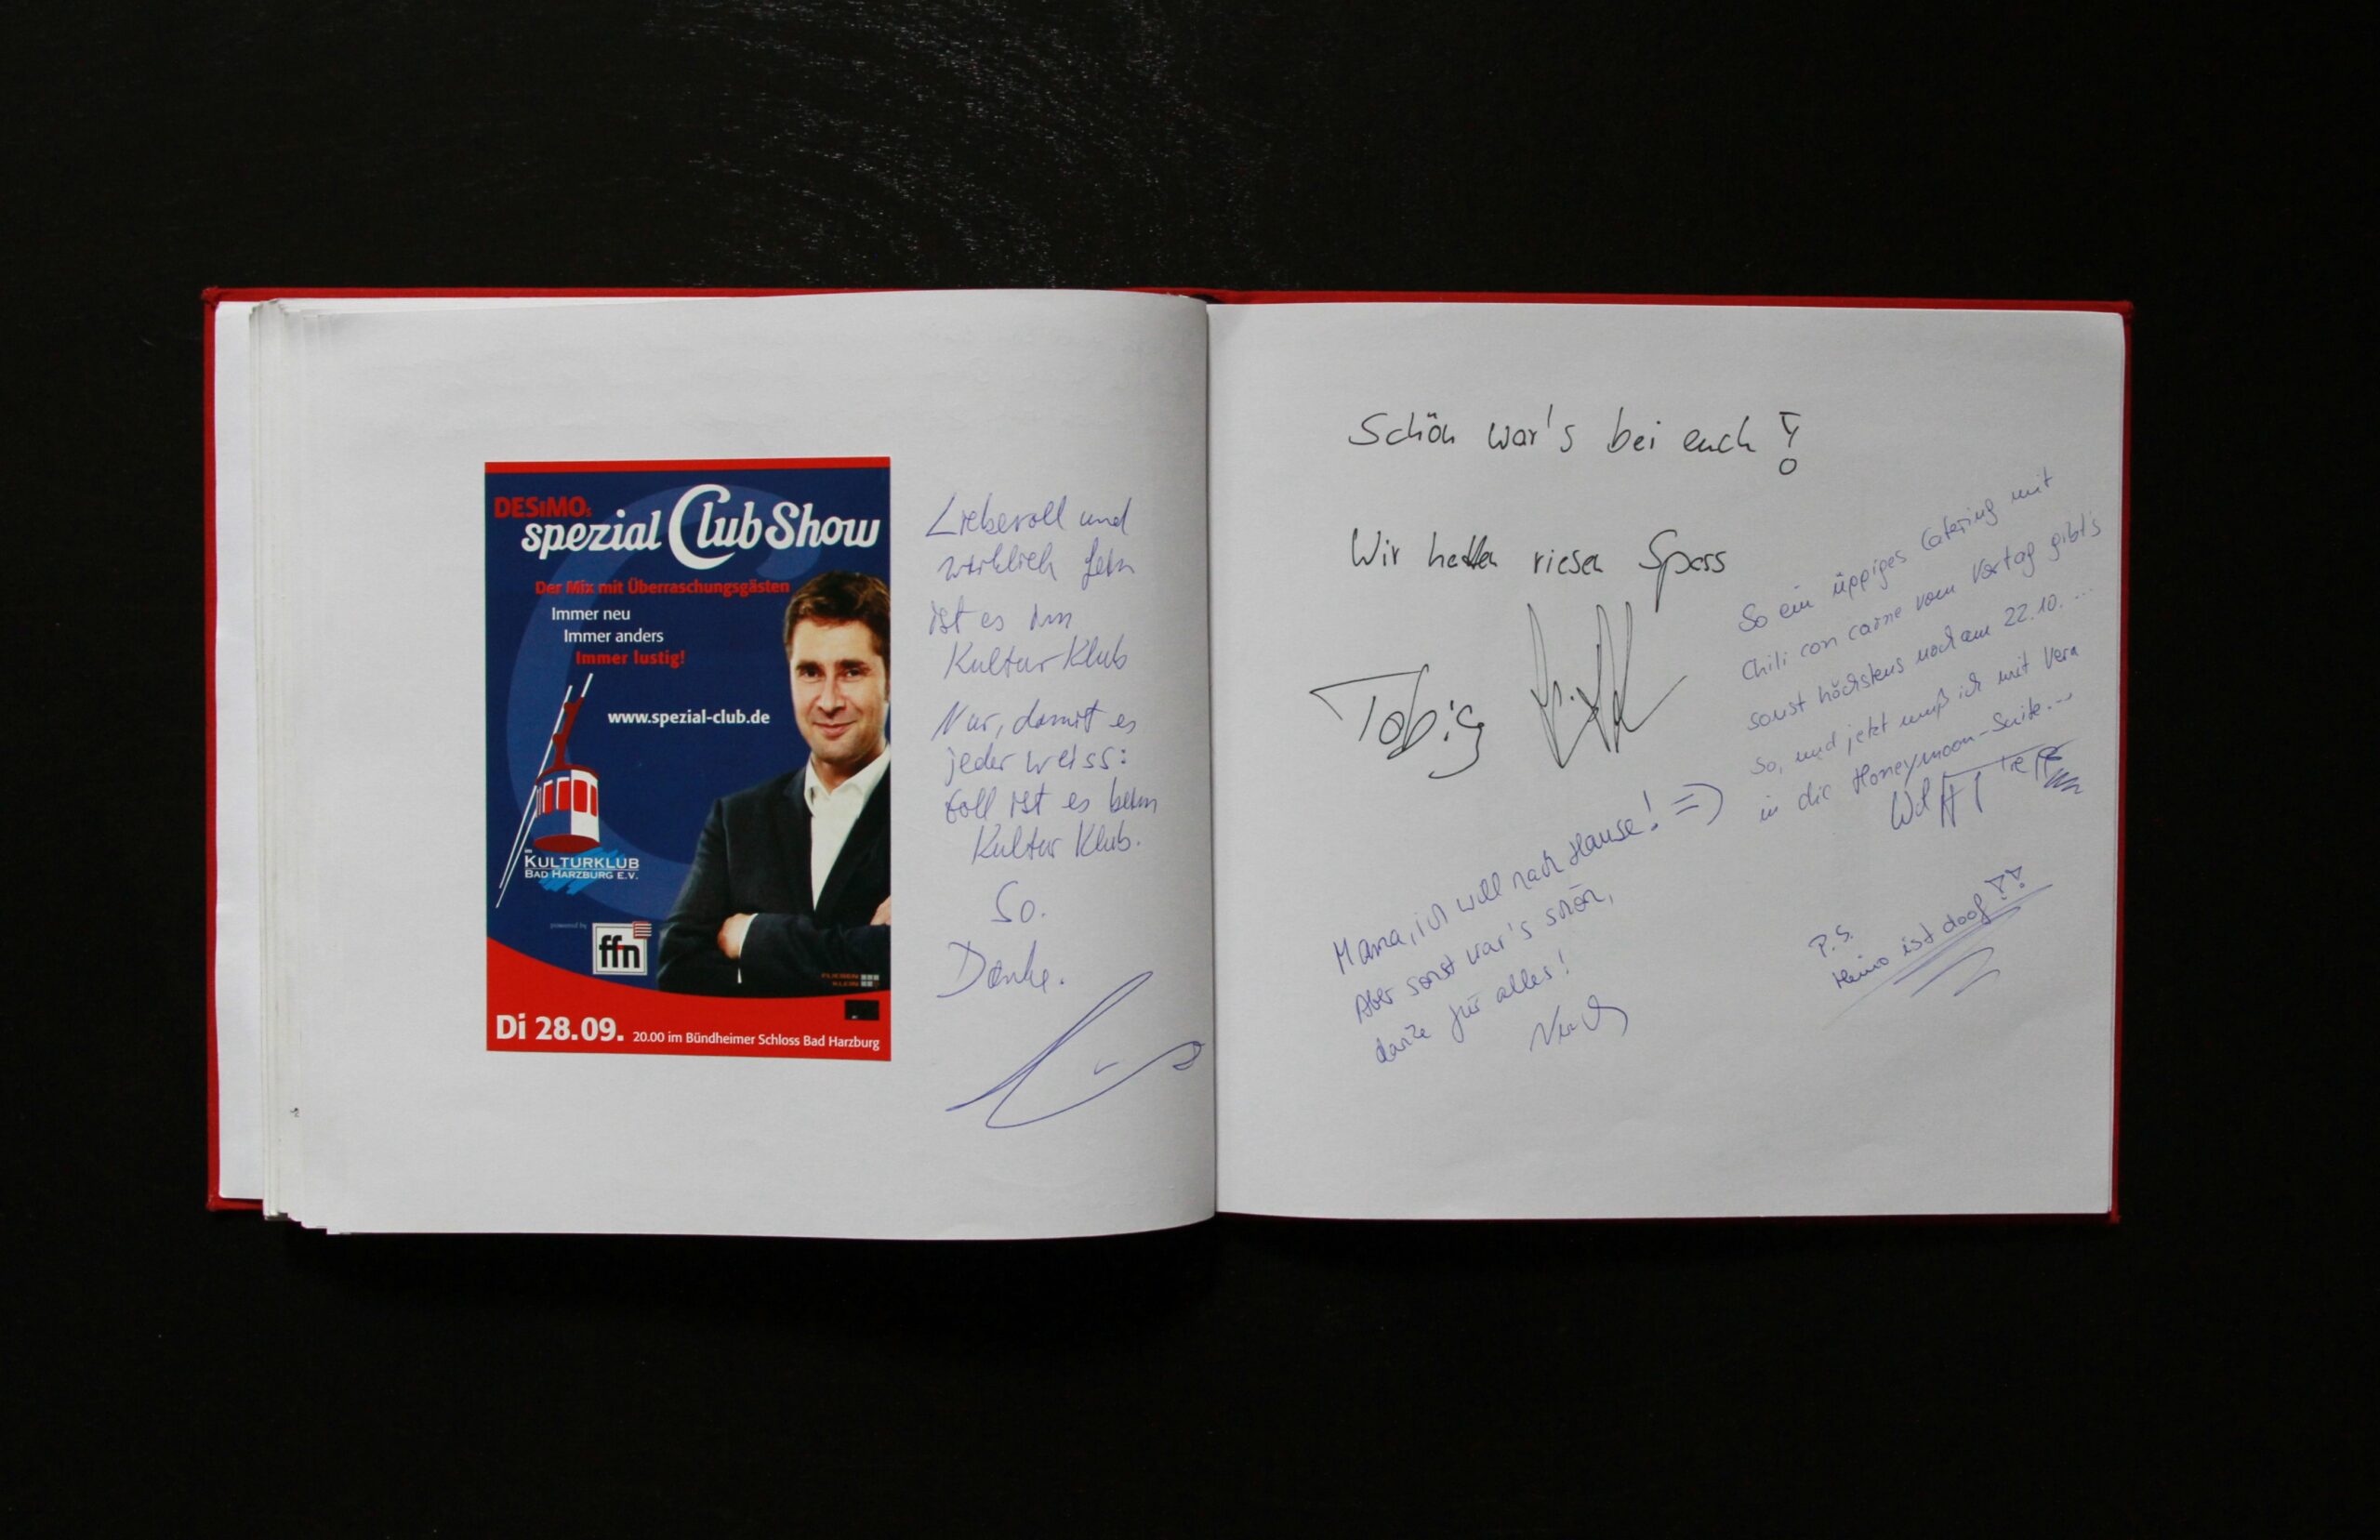 DESiMOs
spezial ClubShow
Der Mix mit Überraschungsgästen
Immer neu
Immer anders
Immer lustig!
www.spezial-club.de
im
KULTURKLUB
BAD HARZBURG E.V.
powered by
ffn
FLIESEN
KLEIN
Di 28.09. 20.00 im Bündheimer Schloss Bad Harzburg
Liebevoll und
wirklich fein
ist es im
Kultur Klub
Nur, damit es
jeder weiss:
toll ist es beim
Kultur Klub.
So.
Danke.
Schön war's bei euch!
Wir hatten riesen Spass
Tobias
So ein üppiges Catering mit
Chili con carne vom Vortag gibt's
sonst höchstens noch am 22.10. ...
So, und jetzt muß ich mit Vera
in die Honeymoon-Suite...
Mama, ich will nach Hause! =)
Aber sonst war's schön,
danke für alles!
P.S.
Heino ist doof!!